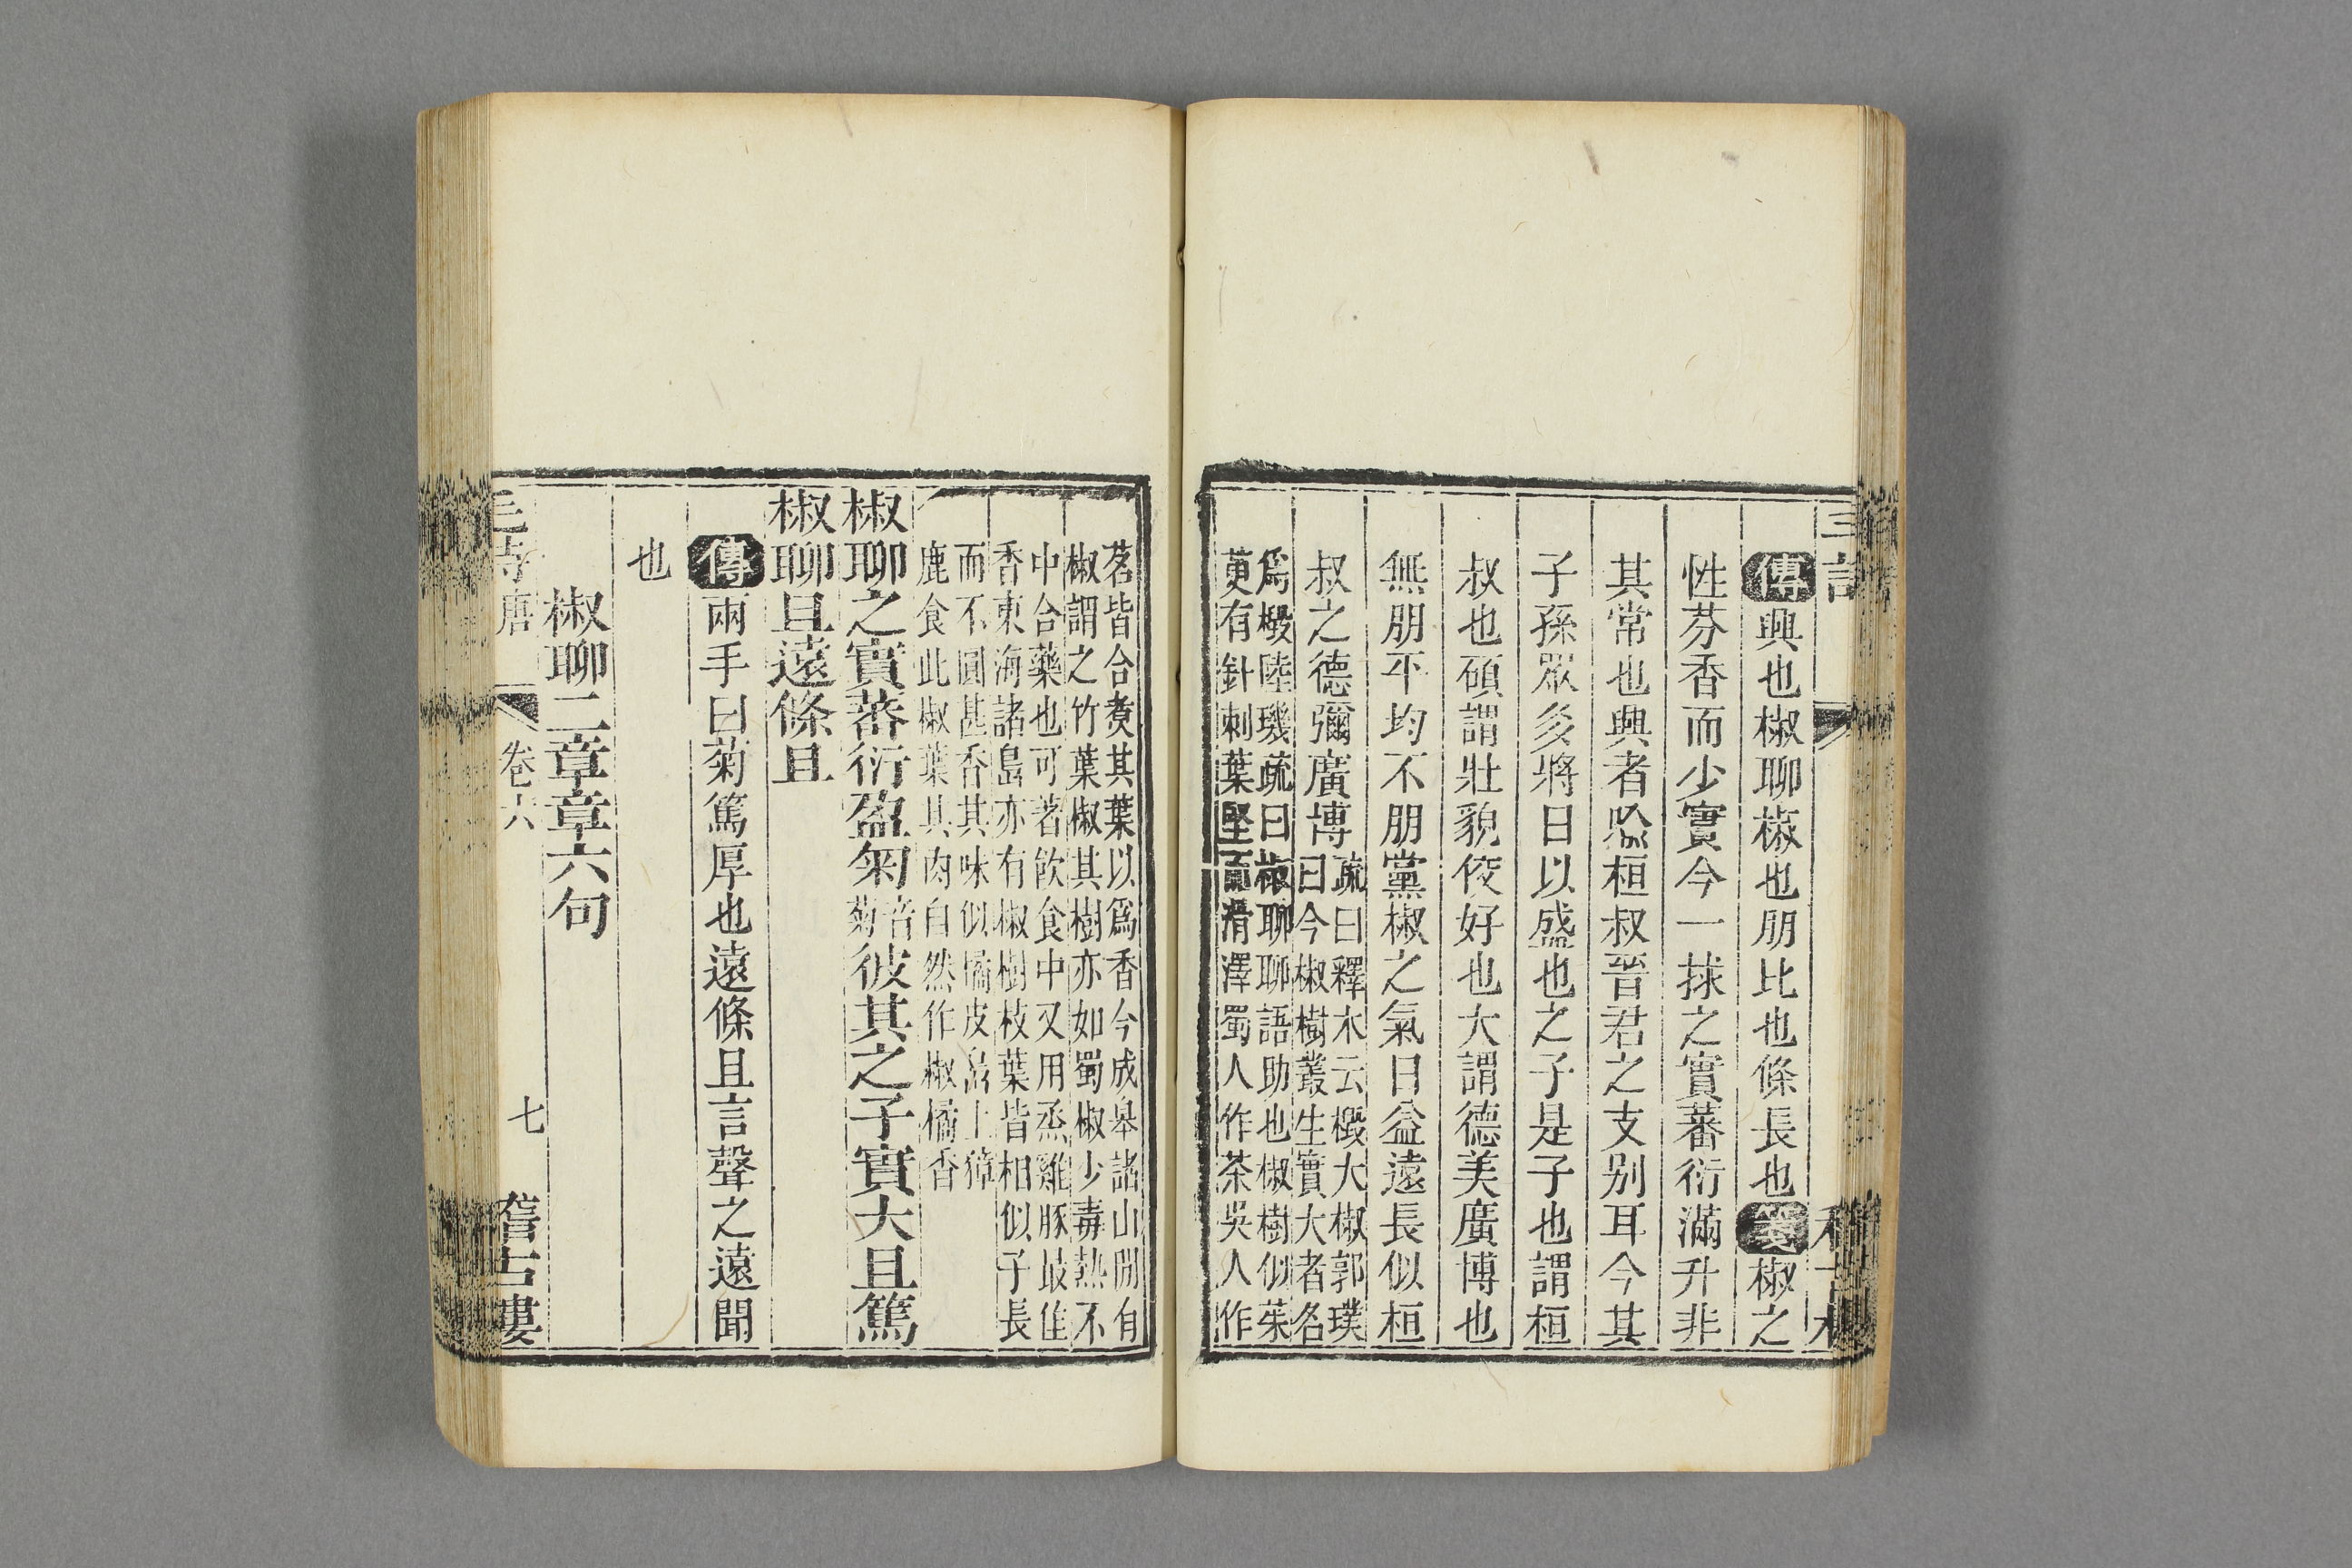 傳興也椒聊椒也朋比也條長也箋椒之
性芬香而少實今一捄之實蕃衍滿升非
其常也興者喻桓叔晉君之支别耳今其
子孫眾多將日以盛也之子是子也謂桓
叔也碩謂壯貌佼好也大謂德美廣博也
無朋平均不朋黨椒之氣日益遠長似桓
叔之德彌廣博疏曰釋木云檓大椒郭璞
曰今椒樹叢生實大者名
爲檓陸璣疏曰椒聊聊語助也椒樹似茱
萸有針刺葉堅而滑澤蜀人作茶吳人作
茗皆合煑其葉以爲香今成皋諸山閒有
椒謂之竹葉椒其樹亦如蜀椒少毒熱不
中合藥也可著飲食中又用烝雞豚㝡佳
香東海諸島亦有椒樹枝葉皆相似子長
而不圓甚香其味似橘皮島上獐
鹿食此椒葉其肉自然作椒橘香
椒聊之實蕃衍盈匊音
菊彼其之子實大且篤
椒聊且遠條且
傳兩手曰菊篤厚也遠條且言聲之遠聞
也
椒聊二章章六句
毛詩唐 卷六 七 稽古樓